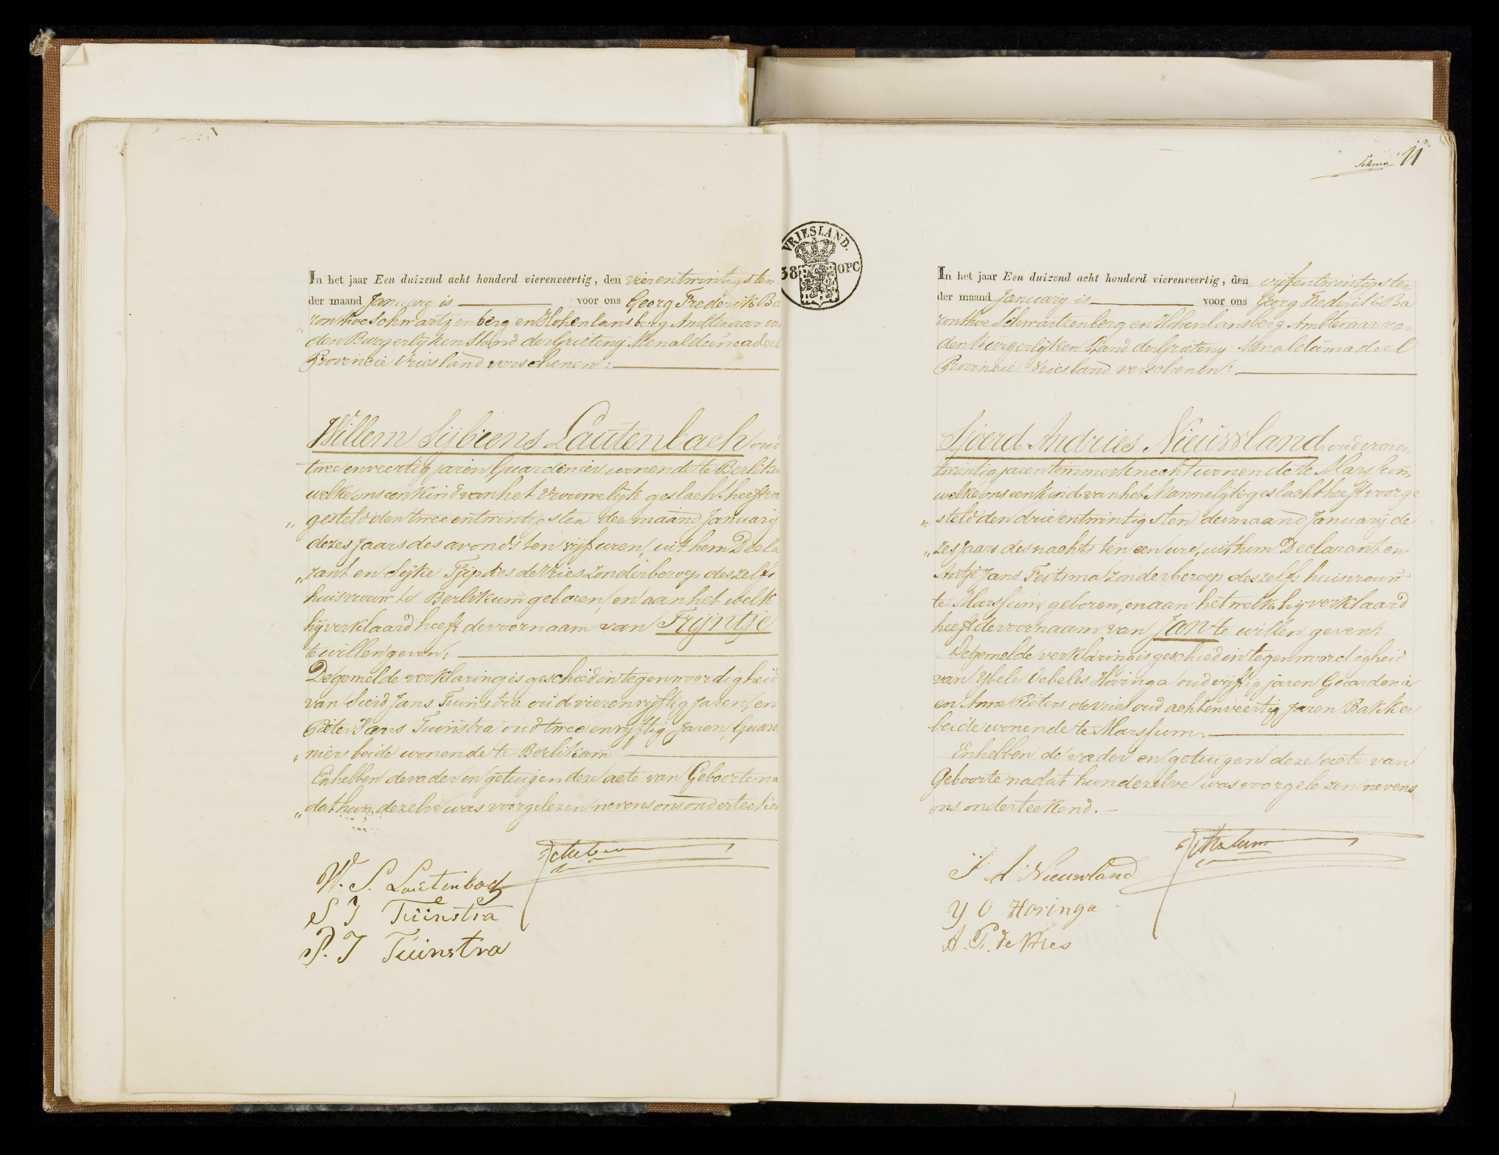 In het jaar Een duizend acht honderd vierenveertig, den vierentwintigsten
der maand January is voor ons Georg Frederik Ba
ronthoe Schwartzenberg en Hohenlansberg Ambtenaar van
den Burgerlyken Stand der Grieteny Menaldumadeel
Provincie Vriesland verschenen:
Willem Sijbrens Lautenbach oud
twee enveertig jaren Guardenier wonende te Berlikum
welke ons een kind van het vrouwelijk geslacht heeft vo
gesteld den twee entwintigsten der maand January
dezes jaars des avonds ten vijf uren, uit hem Decla
rant en Sijke Tjipkes de Vries zonder beroep deszelfs
huisvrouw te Berlikum geboren, en aan het welk
hij verklaard heeft de voornaam van Trijntje
te willen geven,
De gemelde verklaring is geschied in tegenwoordigheid
van Sjoerd Jans Tuinstra oud vierenvijftig jaren en
Pieter Jans Tuinstra oud twee envijftig jaren, Guarde
niers beide wonende te Berlikum
En hebben de vader en getuigen deze acte van Geboorte na
dat hun dezelve was voorgelezen nevens ons onderteekend
W. S. Lautenbach
S J Tuinstra
P. J Tuinstra
VRIESLAND.
38 OPC
11
In het jaar Een duizend acht honderd vierenveertig, den vijfentwintigsten
der maand January is voor ons Georg Frederik Ba
ronthoe Schwartzenberg en Hohenlansberg Ambtenaar van
den burgerlijken Stand der Grieteny Menaldumadeel
Provincie Vriesland verschenen:
Sjoerd Andries Nieuwland oud zeven
twintig jaren timmerknecht wonende te Marssum,
welke ons een kind van het Mannelijk geslacht heeft voorge
steld den drie entwintigsten der maand January de
zes jaars des nachts ten een ure, uit hem Declarant en
Antje Jans Feitsma zonder beroep deszelfs huisvrouw
te Marssum geboren, en aan het welk hij verklaard
heeft de voornaam van Jan te willen geven
De gemelde verklaring is geschied in tegenwoordigheid
van Ypele Oebeles Horinga oud vijftig jaren Guardenier
en Anne Pieters de Vries oud achtenveertig jaren Bakker
beide wonende te Marssum,
En hebben de vader en getuigen deze acte van
Geboorte nadat hun dezelve was voorgelezen nevens
ons onderteekend.
S. A. Nieuwland
Y O Horinga
A. P. de Vries